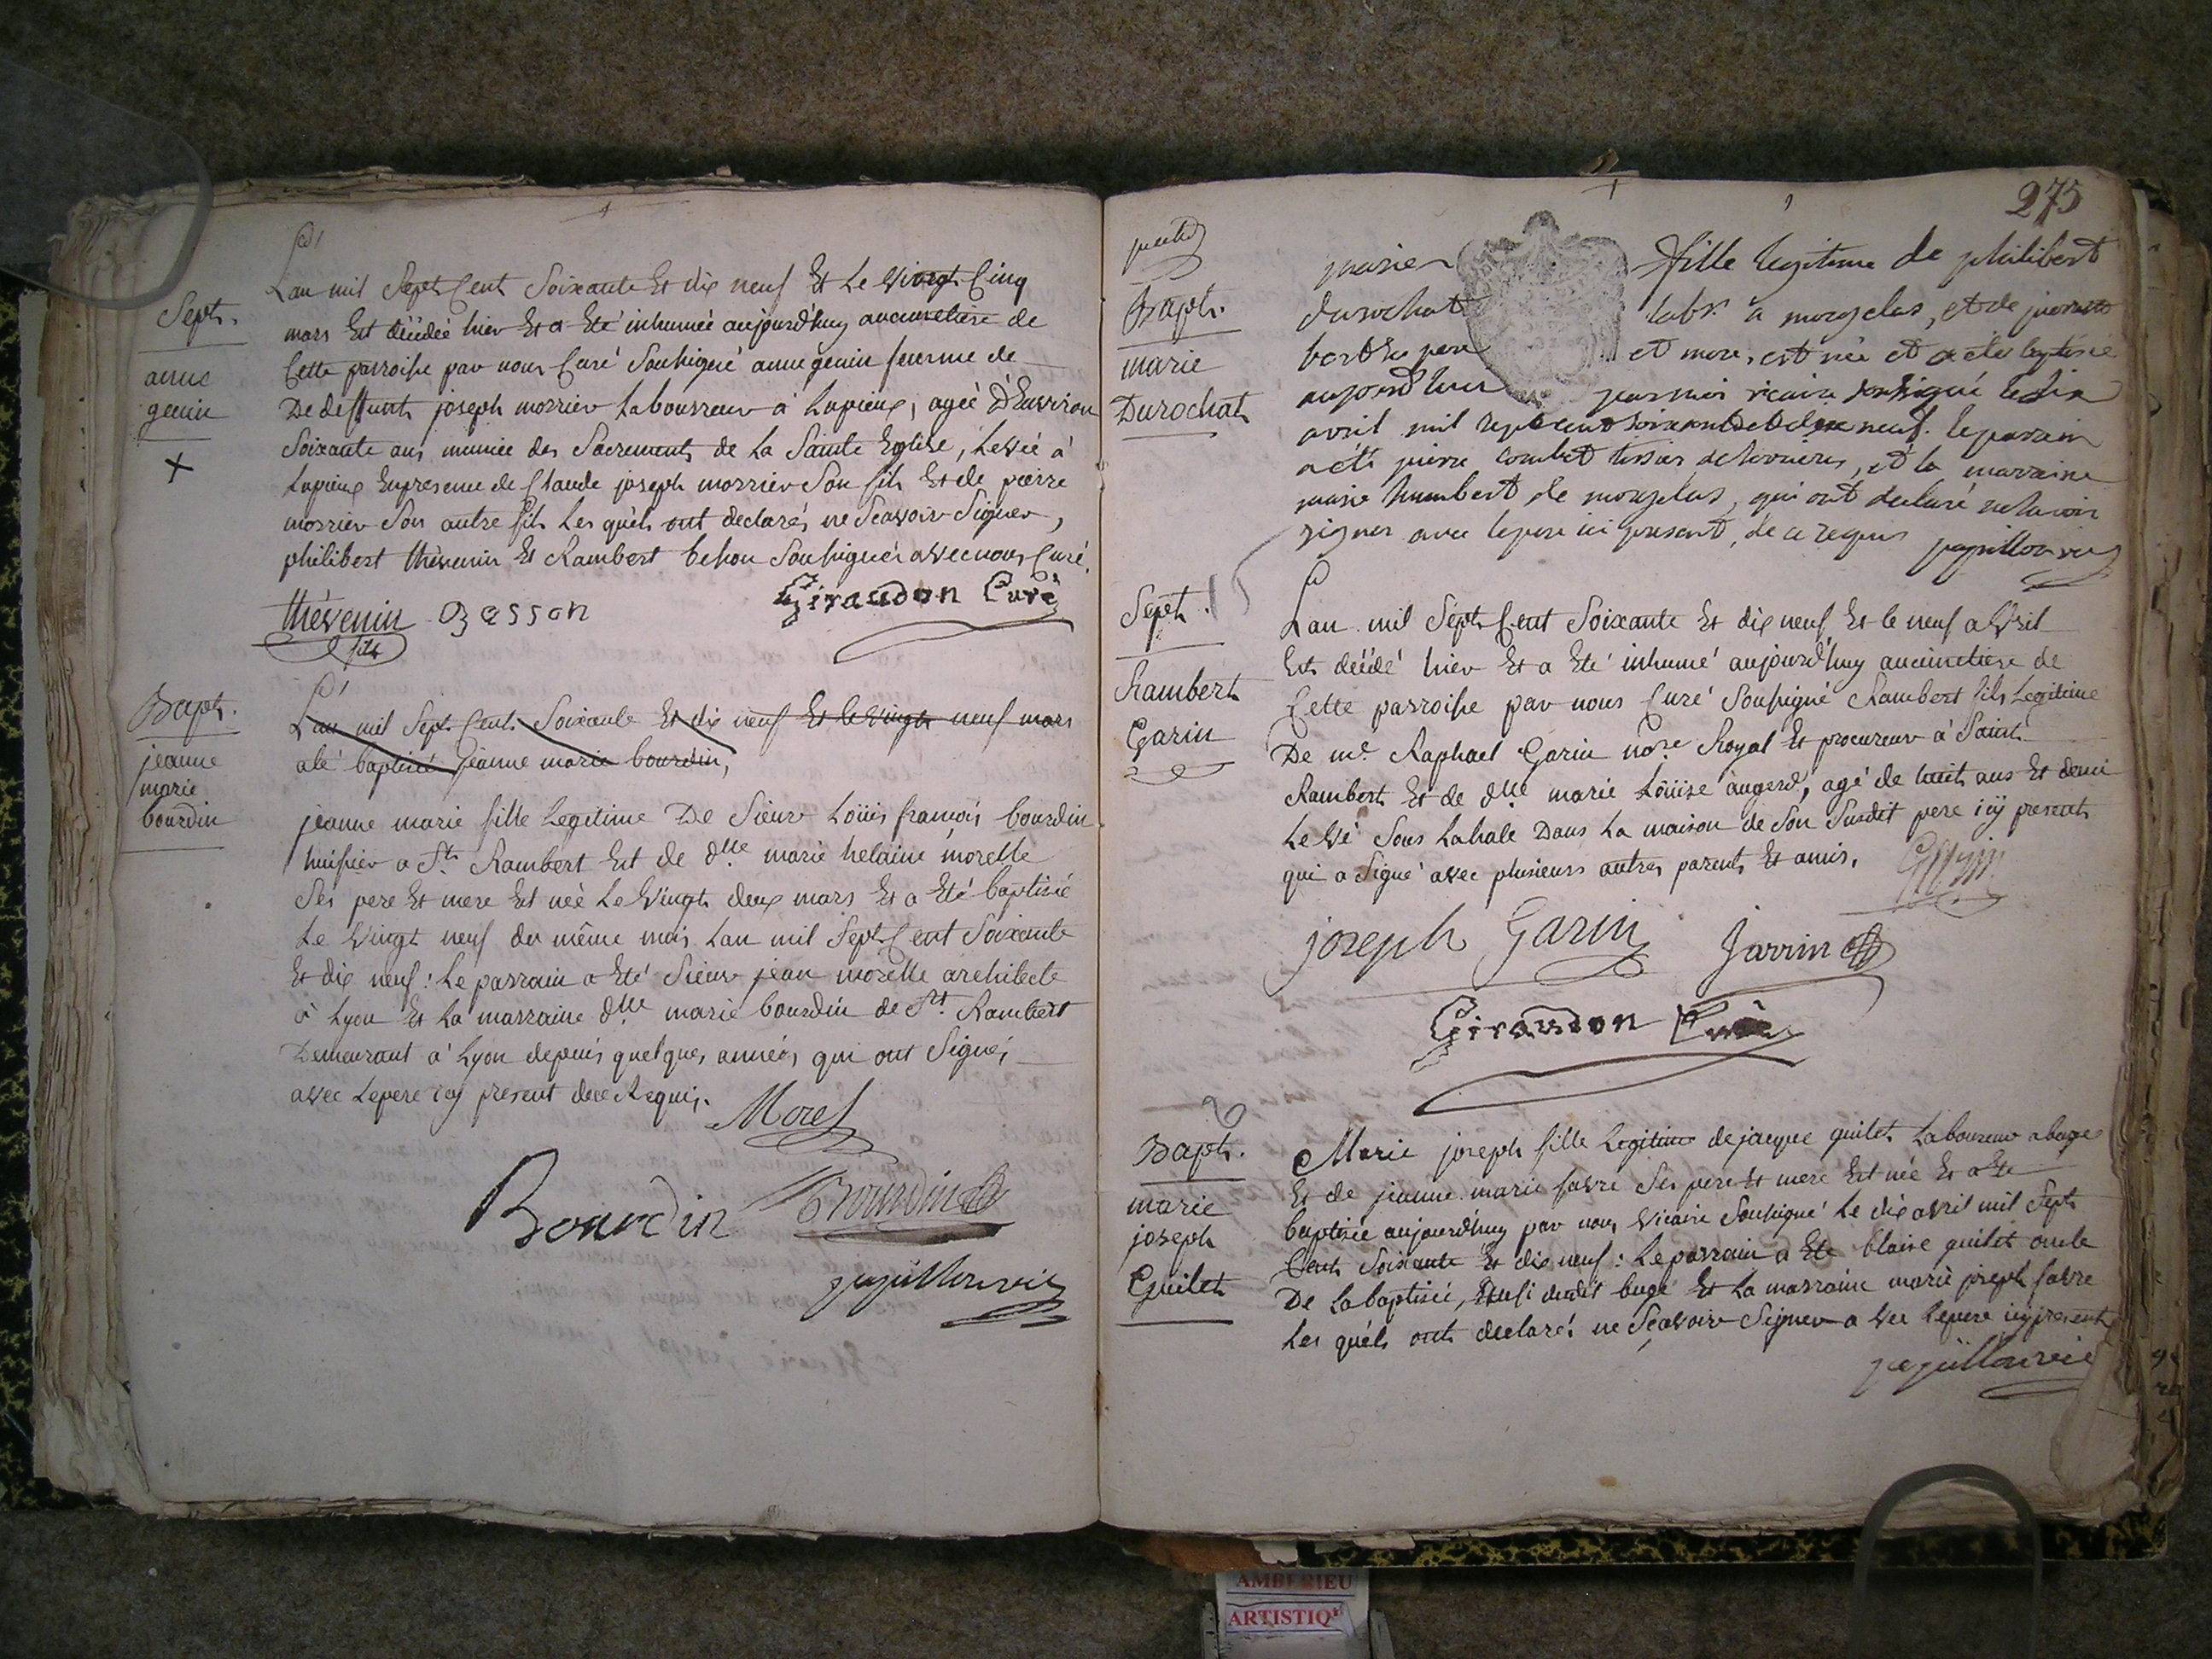 Sept.
anne
genin
Lan mil Sept Cent Soixante Et dix neuf Et Le vingt Cinq
mars Est décédéé hier Et a Eté inhumée aujourd'huy aucimetiere de
Cette parroisse par nous Curé Soussigné anne genin femme de
De deffunt joseph morrier Laboureur à Lupieux, ageé D'Environ
Soixante ans muniée des Sacrements de La Sainte Eglise, Levéé à
Lupieux Enpresence de Claude joseph morrier Son fils Et de pierre
morrier Son autre fils Les quels ont declarés ne Scavoir Signer,
philibert thévenin Et Rambert besson Soussignés avec nous Curé.
thévenin fils
Basson
Giraudon Curé
Bapt.
jeanne
marie
bourdin
Lan mil Sept Cent Soixante Et dix neuf Et le vingt neuf mars
a été baptisée jeanne marie bourdin,
jeanne marie fille Legitime De Sieur Loüis françois bourdin
huissier a St. Rambert Et de dlle marie helaine morelle
Ses pere Et mere Est néé Le Vingt deux mars Et a Eté baptisée
Le Vingt neuf du même mois Lan mil Sept Cent Soixante
Et dix neuf: Le parrain a Eté Sieur jean morelle architecte
à Lyon Et La marraine dlle marie bourdin de St. Rambert
Demeurant à Lyon depuis quelques années, qui ont Signés
avec Lepere icy present de ce Requis.
Morel
Bourdin
Bourdin
papillon vic
275
Bapt.
marie
Durochat
marie fille legitime de philibert
durochat labr. à
et mere, est née et a été baptisée
aujourd'hui par moi vicaire soussigné le dix
avril mil sept cent soixante et dix neuf. le parain
a été pierre combet tissier, et la marraine
marie humbert de, qui ont declaré ne savoir
signer avec le pere ici present, de ce requis papillon vic
Sept.
Rambert
Garin
Lan mil Sept Cent Soixante Et dix neuf Et le neuf aVril
Est décédé hier Et a Eté inhumé aujourd'huy aucimetiere de
Cette parroisse par nous Curé Soussigné Rambert fils Legitime
De me. Raphael Garin nore Royal Et procureur à Saint
Rambert Et de dlle marie Loüise augerd, agé de huit ans Et demi
LeVé Sous Lahale Dans La maison de Son Susdit pere icy present
qui a Signé avec plusieurs autres parents Et amis.
joseph Garin
Jarrin
Giraudon Curé
Bapt.
marie
joseph
Guilet
Marie joseph fille Legitime de jacque guilet Laboureur abuge
Et de jeanne marie favre Ses pere Et mere Est née Et a Eté
baptisée aujourd'huy par nous Vicaire Soussigné Le dix avril mil Sept
Cent Soixante Et dix neuf: Le parrain a Eté blaise guilet oncle
De La baptisée, aussi dudit buge Et La marraine marie joseph favre
Les quels ont declarés ne Scavoir Signer aVec Lepere icy present
papillon vic
AMBERIEU
ARTISTIQ